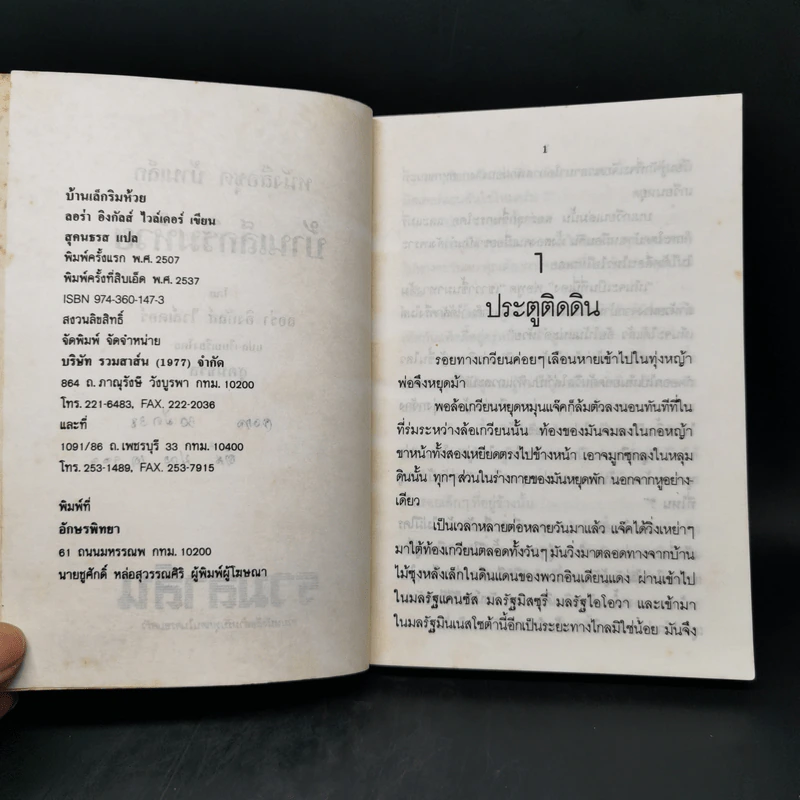 บ้านเล็กริมห้วย
ลอร่า อิงกัลส์ ไวล์เดอร์ เขียน
สุคนธรส แปล
พิมพ์ครั้งแรก พ.ศ. 2507
พิมพ์ครั้งที่สิบเอ็ด พ.ศ. 2537
ISBN 974-360-147-3
สงวนลิขสิทธิ์
จัดพิมพ์ จัดจำหน่าย
บริษัท รวมสาส์น (1977) จำกัด
864 ถ. ภาณุรังษี วังบูรพา กทม. 10200
โทร. 221-6483, FAX, 222-2036
และที่
1091/86 ถ. เพชรบุรี 33 กทม. 10400
โทร. 253-1489, FAX, 253-7915
พิมพ์ที่
อักษรพิทยา
61 ถนนมหรรณพ กทม. 10200
นายชูศักดิ์ หล่อสุวรรณศิริ ผู้พิมพ์ผู้โฆษณา
1
1
ประตูติดดิน
รอยทางเกวียนค่อยๆ เลือนหายเข้าไปในทุ่งหญ้า
พ่อจึงหยุดม้า
พอล้อเกวียนหยุดหมุนแจ๊คก็ล้มตัวลงนอนทันทีที่ใน
ที่ร่มระหว่างล้อเกวียนนั้น ท้องของมันจมลงในกอหญ้า
ขาหน้าทั้งสองเหยียดตรงไปข้างหน้า เอาจมูกซุกลงในหลุม
ดินนั้น ทุกๆ ส่วนในร่างกายของมันหยุดพัก นอกจากหูอย่าง-
เดียว
เป็นเวลาหลายต่อหลายวันมาแล้ว แจ๊คได้วิ่งเหย่าๆ
มาใต้ท้องเกวียนตลอดทั้งวันๆ มันวิ่งมาตลอดทางจากบ้าน
ไม้ซุงหลังเล็กในดินแดนของพวกอินเดียนแดง ผ่านเข้าไป
ในมลรัฐแคนซัส มลรัฐมิสซุรี่ มลรัฐไอโอวา และเข้ามา
ในมลรัฐมินเนสโซต้านี้อีกเป็นระยะทางไกลมิใช่น้อย มันจึง